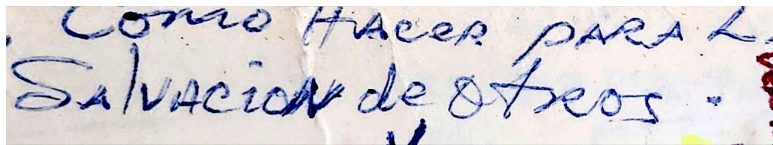 Como HACER PARA L
SALVACION de OtROS.